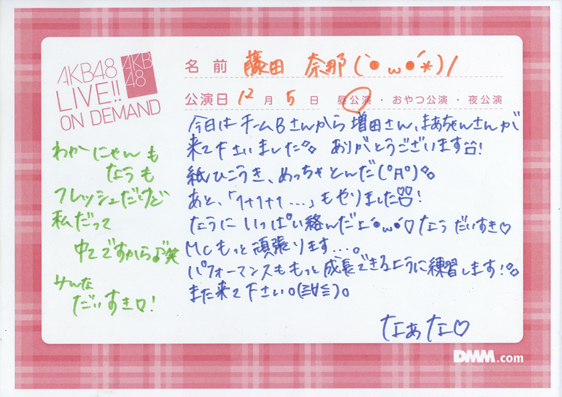 AKB48
LIVE!!
ON DEMAND
AKB
48
名前 藤田 奈那(`●ω●´*)/
公演日 12月5日 昼公演・おやつ公演・夜公演
今日はチームBさんから増田さん、まあちゃんさんが
来て下さいました♡ ありがとうございます!
紙ひこうき、めっちゃとんだ(°Д°)
あと、「1+1+1…」もやりました!
なうにいっぱい絡んだよ´●ω●`♡なうだいすき♡
MCもっと頑張ります…。
パフォーマンスももっと成長できるように練習します!
また来て下さい。(≧∀≦)。
なぁな♡
わかにゃんも
なうも
フレッシュだけど
私だって
中2ですから♪笑
みんな
だいすき♡!
DMM.com